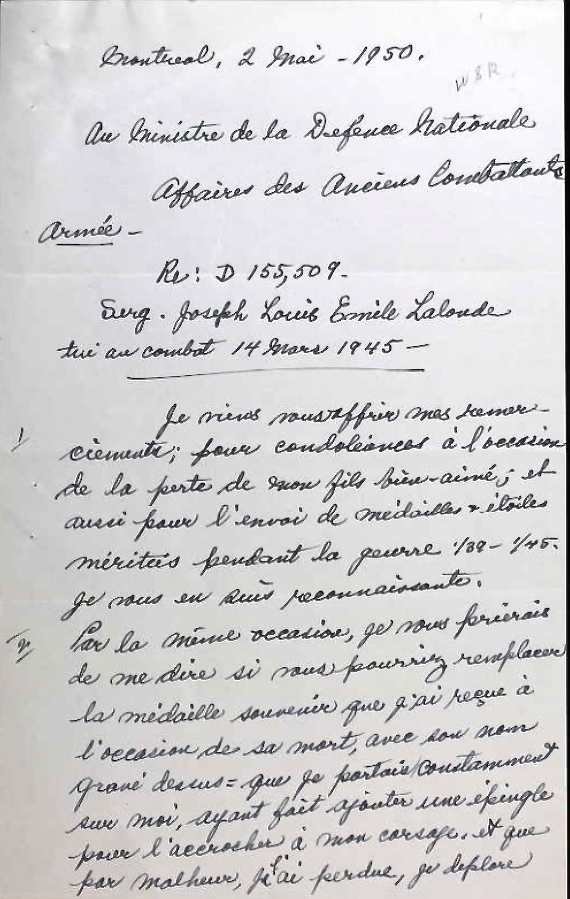 Montreal, 2 Mai - 1950.
W S R
Au Ministre de la Defence Nationale
Affaires des Anciens Combattants
Armée -
Re: D 155,509.
Serg. Joseph Louis Emile Lalonde
tué au combat 14 Mars 1945 -
Je viens vous offrir mes remer-
1/ ciements; pour condoléances à l'occasion
de la perte de mon fils bien-aimé; et
aussi pour l'envoi de médailles & étoiles
méritées pendant la geurre 1/39 - 1/45.
Je vous en suis reconnaissante.
2/ Par la même occasion, je vous prierais
de me dire si vous pourriez remplacer
la médaille souvenir que j'ai reçue à
l'occasion de sa mort, avec son nom
gravé dessus = que je portais constamment
sur moi, ayant fait ajouter une épingle
pour l'accrocher à mon corsage. et que
par malheur, je l'ai perdue, je deplore